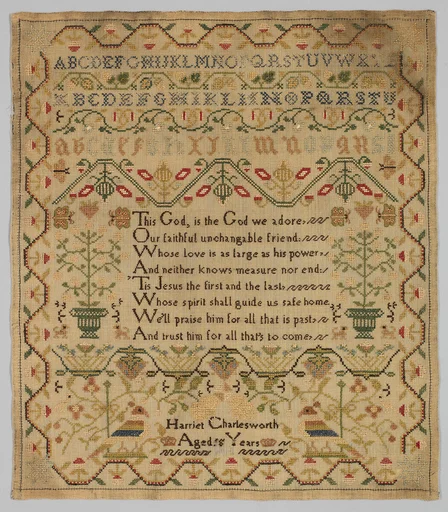 ABCDEFGHIJKLMNOPQRSTUVWXYZ
ABCDEFGHIKLMNOPQRSTU
This God, is the God we adore,
Our faithful unchangable friend,
Whose love is as large as his power,
And neither knows measure nor end:
'Tis Jesus the first and the last,
Whose spirit shall guide us safe home,
We'll praise him for all that is past,
And trust him for all that's to come,
Harriet Charlesworth
Aged Years